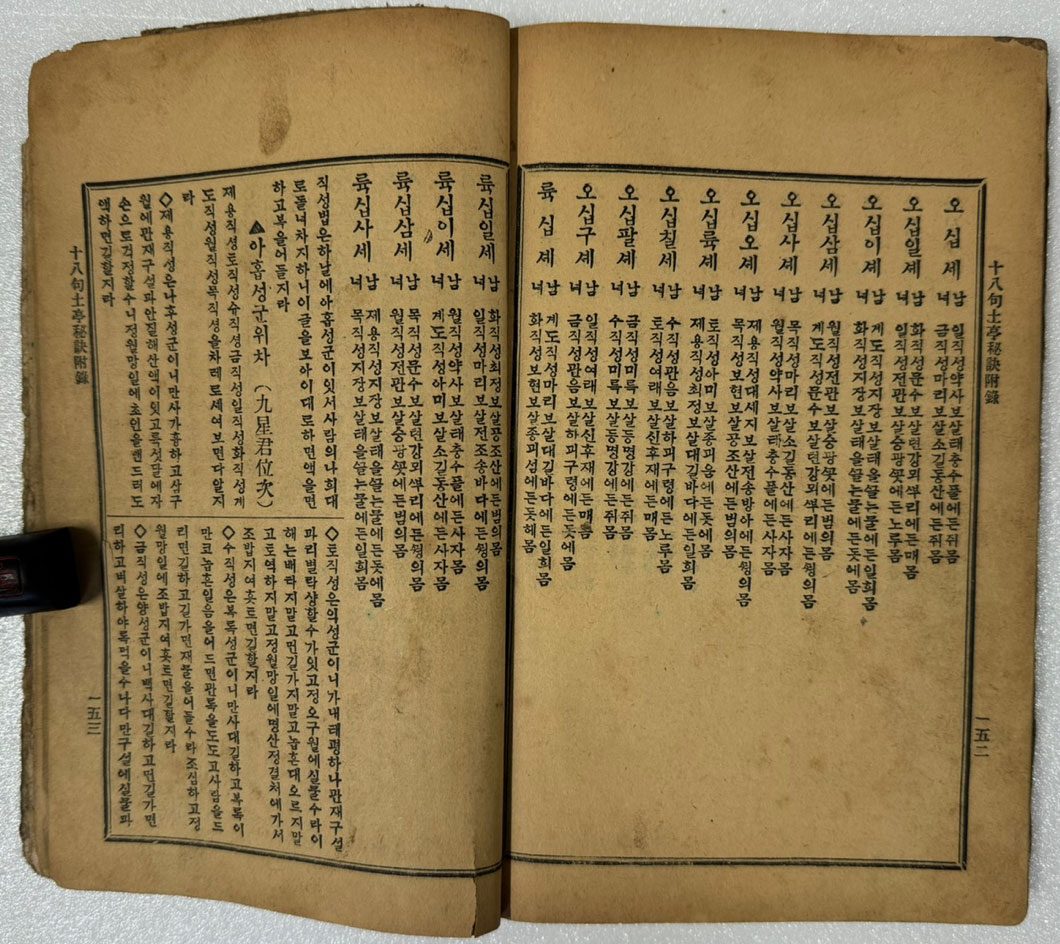 十八句土亭秘訣附錄
오십세
남 일직성약사보살태충수풀에든쥐몸
녀 금직성마리보살소길동산에든쥐몸
오십일셰
남 화직성문수보살텬강외ᄲᅮ리에든매몸
녀 일직성전관보살중광붓에든노루몸
오십이셰
남 계도직성지장보살태을ᄭᅳᆯ는물에든일희몸
녀 화직성지장보살태을ᄭᅳᆯ는물에든돗에몸
오십삼세
남 월직성전관보살중광붓에든범의몸
녀 계도직성문수보살텬강외ᄲᅮ리에든ᄭᅯᆼ의몸
오십사셰
남 목직성마리보살소길동산에든사자몸
녀 월직성약사보살태충수풀에든사자몸
오십오셰
남 제용직성대세지보살전송방아에든ᄭᅯᆼ의몸
녀 목직성보현보살공조산에든범의몸
오십륙셰
남 토직성아미보살종피움에든돗에몸
녀 제용직성최정보살대길바다에든일희몸
오십칠셰
남 수직성관음보살하괴구령에든노루몸
녀 토직성여래보살신후재에든매몸
오십팔셰
남 금직성미륵보살등명강에든쥐몸
녀 수직성미륵보살등명강에든쥐몸
오십구셰
남 일직성여래보살신후재에든매몸
녀 금직성관음보살하괴구령에든돗에몸
륙십셰
남 계도직성마리보살대길바다에든일희몸
녀 화직성보현보살종괴섬에든돗헤몸
一五二
륙십일셰
남 화직성최정보살공조산에든범의몸
녀 일직성마리보살전조송바다에든ᄭᅯᆼ의몸
륙십이셰
남 월직성약사보살태충수풀에든사자몸
녀 계도직성아미보살소길동산에든사자몸
륙십삼세
남 목직성문수보살텬강외ᄲᅮ리에든ᄭᅯᆼ의몸
녀 월직성전관보살중광붓에든범의몸
륙십사세
남 제용직성지장보살태을ᄭᅳᆯ는물에든돗에몸
녀 목직성지장보살태을ᄭᅳᆯ는물에든일희몸
직성법은하날에아홉성군이잇서사람의나희대
로돌녀차지하니이글을보아이대로하면액을면
하고복을어들지라
▲아홉성군위차 (九星君位次)
제용직셩토직성슈직셩금직성일직성화직성계
도직성월직성목직성을차례로세여보면다알지
라
◇제용직성은나후성군이니만사가흉하고사구
월에관재구설파안질해산액이잇고륙섯달에자
손으로걱정할수니정월망일에초인을맨드러도
액하면길할지라
◇토직성은의성군이니가내태평하나관재구설
파리별탁상할수가잇고정오구월에실물수라이
해는배타지말고먼길가지말고놉흔대오르지말
고로역하지말고정월망일에명산정결처에가서
조밥지여훗트면길할지라
◇수직성은복록성군이니만사대길하고복록이
만코놉흔일음을어드면관록을도도고사람을드
리면길하고길가면재물을어들수라조심하고정
월망일에조밥지여훗트면길할지라
◇금직성은양성군이니백사대길하고먼길가면
리하고벼살하야록먹을수나다만구설에실물파
十八句土亭秘訣附錄
一五三